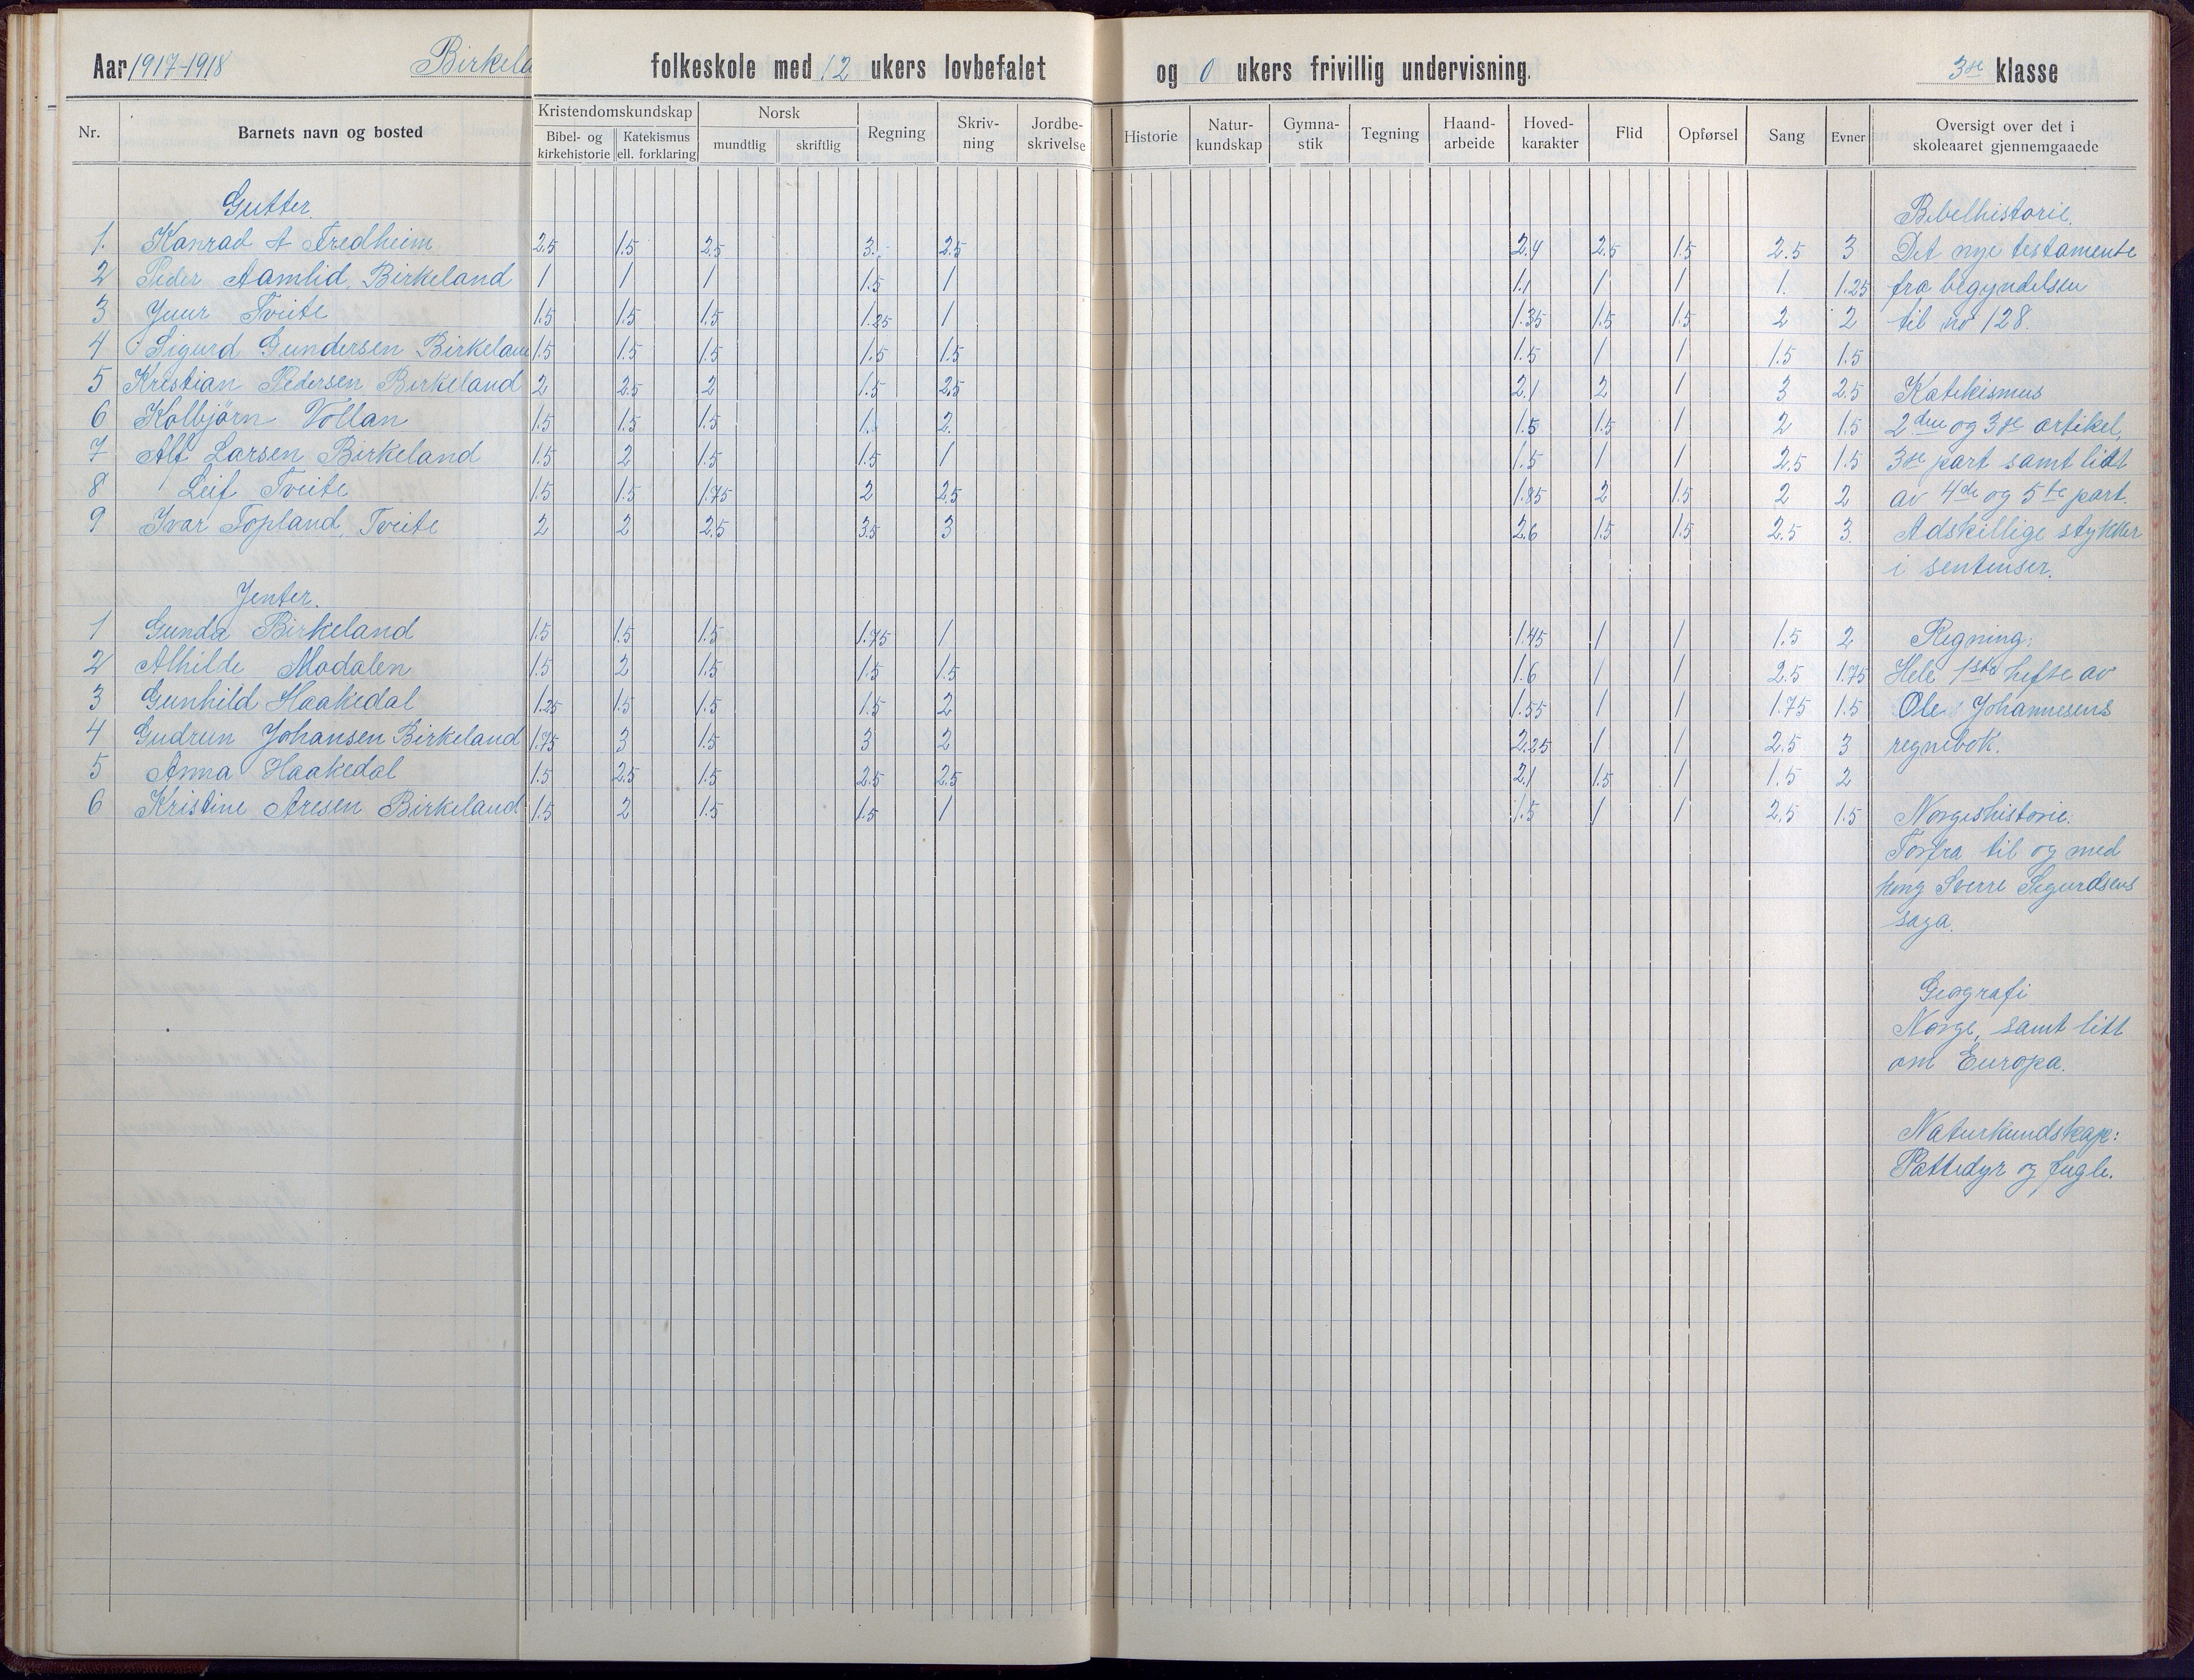 Aar 1917-1918 Birkela folkeskole med 12 ukers lovbefalet og 0 ukers frivillig undervisning. 3die klasse
Nr. Barnets navn og bosted Kristendomskundskap Bibel- og kirkehistorie Katekismus ell. forklaring Norsk mundtlig skriftlig Regning Skriv-ning Jordbe-skrivelse Historie Natur-kundskap Gymna-stik Tegning Haand-arbeide Hoved-karakter Flid Opførsel Sang Evner Oversigt over det i skoleaaret gjennemgaaede
Gutter. Bibelhistorie.
1. Konrad A Fredheim 2.5 1.5 2.5 3. 2.5 2.4 2.5 1.5 2.5 3 Det nye testamente
2 Peder Aamlid, Birkeland 1 1 1 1.5 1 1.1 1 1 1. 1.25 fra begyndelsen
3 Juur Tveite 1.5 1.5 1.5 1.25 1 1.35 1.5 1.5 2 2 til no 128.
4 Sigurd Gundersen Birkelan 1.5 1.5 1.5 1.5 1.5 1.5 1 1 1.5 1.5
5 Kristian Pedersen Birkeland 2 2.5 2 1.5 2.5 2.1 2 1 3 2.5 Katekismus
6 Kolbjørn Vollan 1.5 1.5 1.5 1. 2. 1.5 1.5 1 2 1.5 2den og 3die artikel,
7 Alf Larsen Birkeland 1.5 2 1.5 1.5 1 1.5 1 1 2.5 1.5 3die part samt lidt
8 Leif Tveite 1.5 1.5 1.75 2 2.5 1.85 2 1.5 2 2 av 4de og 5te part.
9 Ivar Topland, Tveite 2 2 2.5 3.5 3 2.6 1.5 1.5 2.5 3. Adskillige stykker
i sentenser.
Jenter.
1 Gunda Birkeland 1.5 1.5 1.5 1.75 1 1.45 1 1 1.5 2 Regning:
2 Alhilde Modalen 1.5 2 1.5 1.5 1.5 1.6 1 1 2.5 1.75 Hele 1ste hefte av
3 Gunhild Haakedal 1.25 1.5 1.5 1.5 2 1.55 1 1 1.75 1.5 Ole Johannesens
4 Gudrun Johansen Birkeland 1.75 3 1.5 3 2 2.25 1 1 2.5 3 regnebok.
5 Anna Haakedal 1.5 2.5 1.5 2.5 2.5 2.1 1.5 1 1.5 2
6 Kristine Aresen Birkeland 1.5 2 1.5 1.5 1 1.5 1 1 2.5 1.5 Norgeshistorie:
Forfra til og med
kong Sverre Sigurdsens
saga.
Geografi
Norge, samt litt
om Europa.
Naturkundskap:
Pattedyr og fugle.